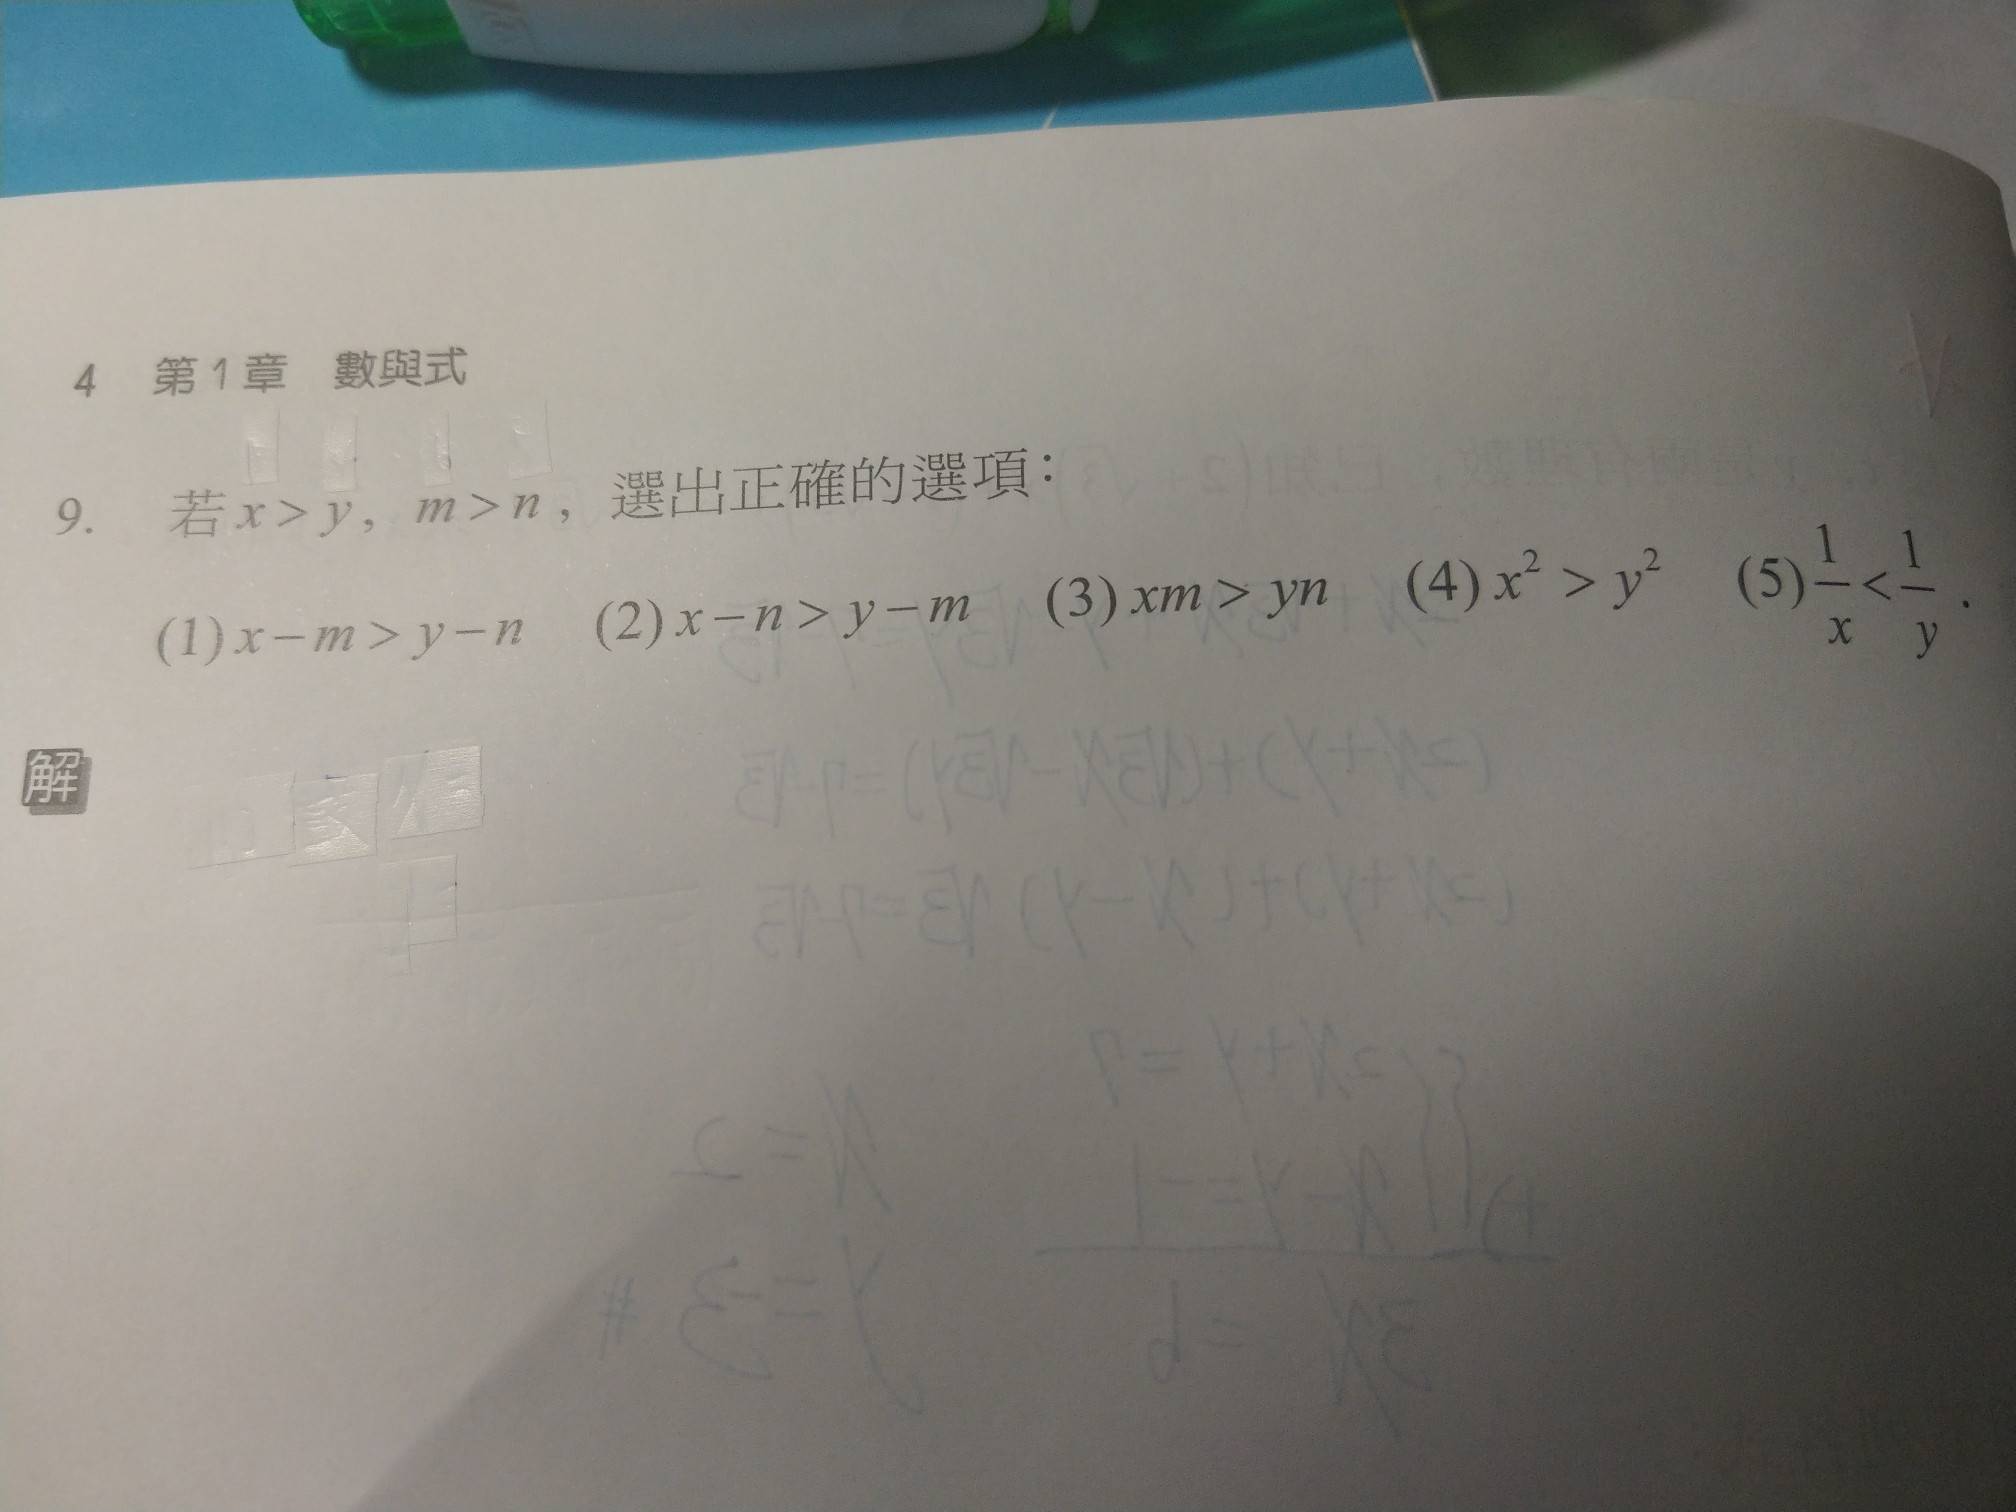 4 第1章 數與式
9. 若 x > y, m > n, 選出正確的選項:
(1) x − m > y − n (2) x − n > y − m (3) xm > yn (4) x² > y² (5) 1/x < 1/y .
解